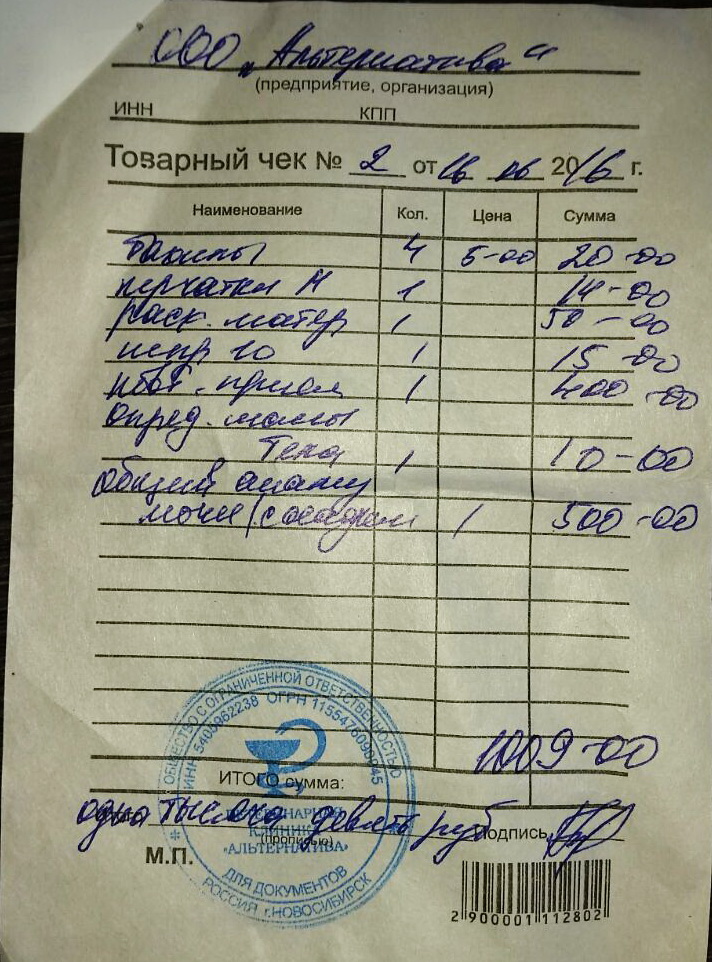 ООО „Альтернатива“
(предприятие, организация)
ИНН КПП
Товарный чек № 2 от 16 06 2016 г.
Наименование Кол. Цена Сумма
бахилы 4 5-00 20-00
перчатки М 1 14-00
расх. матер 1 50-00
шпр 10 1 15-00
прием 1 400-00
опред. массы
тела 1 10-00
общий анализ
мочи (с осадком 1 500-00
1009-00
ИТОГО сумма:
одна тысяча девять руб подпись
(прописью)
М.П.
ОБЩЕСТВО С ОГРАНИЧЕННОЙ ОТВЕТСТВЕННОСТЬЮ
ИНН 5405962238 ОГРН
ВЕТЕРИНАРНАЯ
КЛИНИКА
«АЛЬТЕРНАТИВА»
ДЛЯ ДОКУМЕНТОВ
РОССИЯ г.НОВОСИБИРСК
2 900001 112802